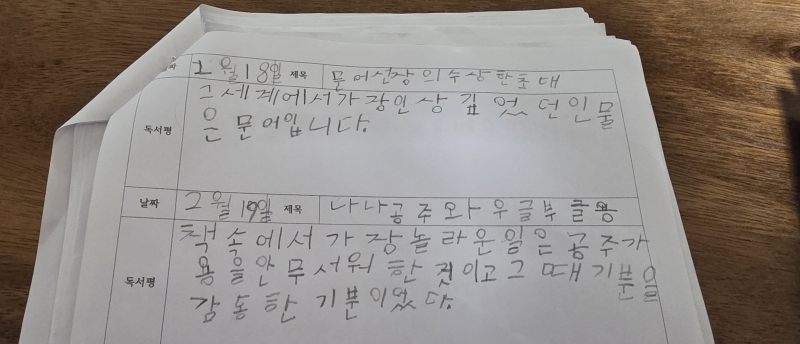 날짜 2월18일 제목 문어선장의수상한초대
그세계에서가장인상깊었던인물
독서평
은문어입니다.
날짜 2월19일 제목 나나공주와우글부글용
책속에서가장놀라운일은공주가
독서평 용을안무서워한것이고그때기분을
감동한기분이었다.